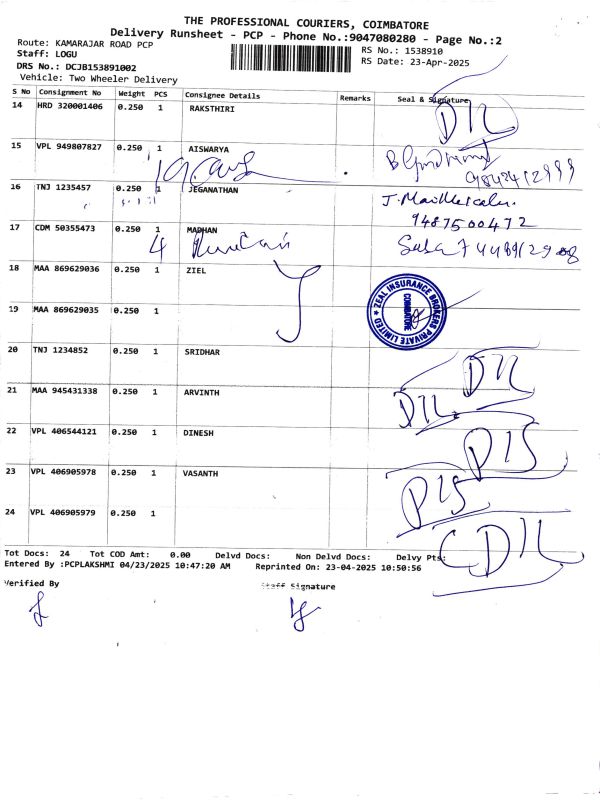 THE PROFESSIONAL COURIERS, COIMBATORE
Delivery Runsheet - PCP - Phone No.:9047080280 - Page No.:2
Route: KAMARAJAR ROAD PCP
RS No.: 1538910
Staff: LOGU
RS Date: 23-Apr-2025
DRS No.: DCJB153891002
Vehicle: Two Wheeler Delivery
S No Consignment No Weight PCS Consignee Details Remarks Seal & Signature
14 HRD 320001406 0.250 1 RAKSTHIRI
15 VPL 949807827 0.250 1 AISWARYA
16 TNJ 1235457 0.250 1 JEGANATHAN
9487500472
17 CDM 50355473 0.250 1 MADHAN
18 MAA 869629036 0.250 1 ZIEL
ZEAL INSURANCE BROKERS PRIVATE LIMITED
COIMBATORE
19 MAA 869629035 0.250 1
20 TNJ 1234852 0.250 1 SRIDHAR
21 MAA 945431338 0.250 1 ARVINTH
22 VPL 406544121 0.250 1 DINESH
23 VPL 406905978 0.250 1 VASANTH
24 VPL 406905979 0.250 1
Tot Docs: 24 Tot COD Amt: 0.00 Delvd Docs: Non Delvd Docs: Delvy Pts:
Entered By :PCPLAKSHMI 04/23/2025 10:47:20 AM Reprinted On: 23-04-2025 10:50:56
Verified By Staff Signature